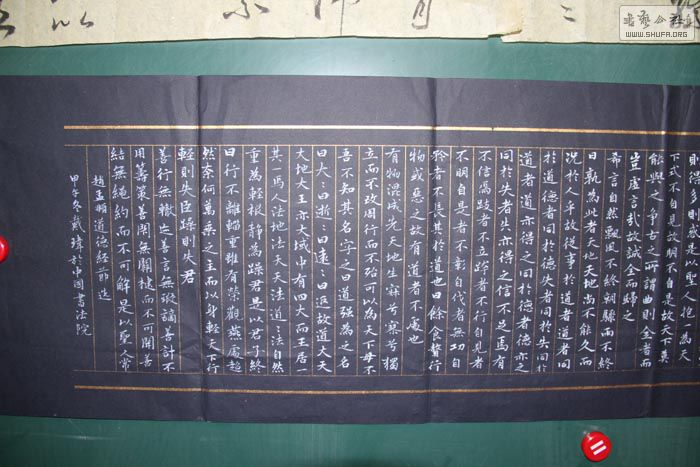 則得多則惑是以聖人抱一為天
下式不自見故明不自是故天下莫
能與之爭古之所謂曲則全者而
豈虛言哉故誠全而歸之
希言自然飄風不終朝驟雨不終
日孰為此者天地天地尚不能久而
況於人乎故從事於道者道者同
於道德者同於德失者同於失同於
道者道亦得之同於德者德亦得之
同於失者失亦得之信不足焉有
不信跂者不立跨者不行自見者
不明自是者不彰自伐者無功自
矜者不長其於道也曰餘食贅行
物或惡之故有道者不處也
有物混成先天地生寂兮寥兮獨
立而不改周行而不殆可以為天下母
吾不知其名字之曰道強為之名
曰大大曰逝逝曰遠遠曰返故道大天大
地大王亦大域中有四大而王居一
其一焉人法地法天天法道道法自然
重為輕根靜為躁君是以君子終
日行不離輜重雖有榮觀燕處超
然奈何萬乘之主而以身輕天下行
輕則失臣躁則失君
善行無轍迹善言無瑕謫善計不
用籌策善閉無關楗而不可開善
結無繩約而不可解是以聖人常
趙孟頫道德經節選
甲午冬戴瑋於中國書法院
WWW.SHUFA.ORG